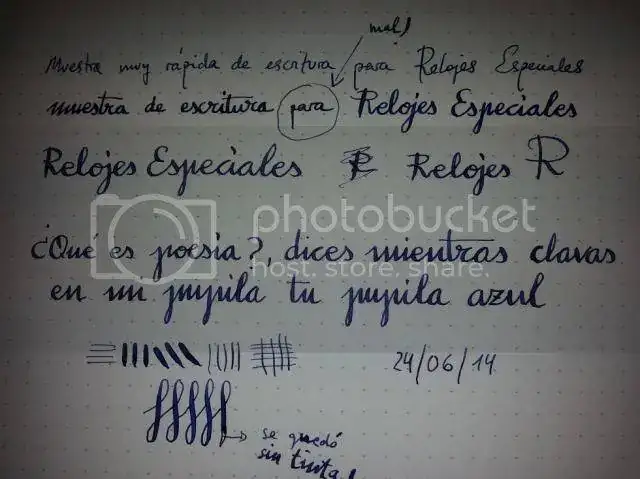 mal)
Muestra muy rápida de escritura para Relojes Especiales
muestra de escritura para Relojes Especiales
Relojes Especiales R Relojes R
photobucket
host. store. share.
¿Qué es poesia?, dices mientras clavas
en un pupila tu pupila azul
24/06/14
se quedó
sin tinta!